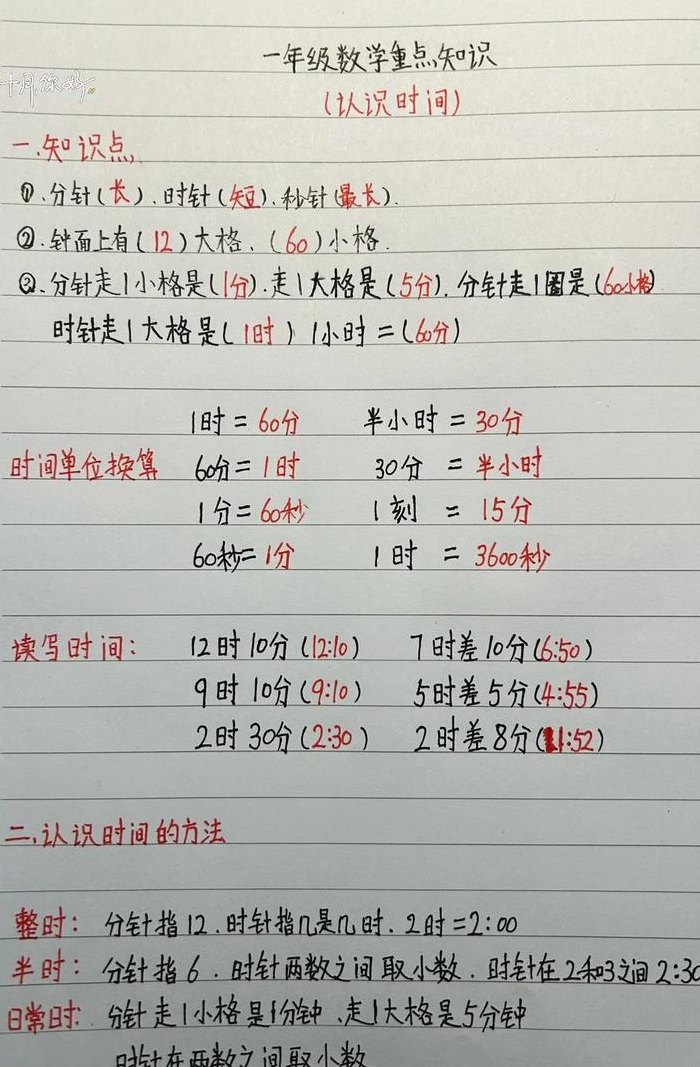 一年级数学重点知识
十月,你好
(认识时间)
一.知识点,
①.分针(长).时针(短).秒针(最长).
②.钟面上有(12)大格、(60)小格.
③.分针走1小格是(1分).走1大格是(5分).分针走1圈是(60小格)
时针走1大格是(1时) 1小时=(60分)
1时=60分 半小时=30分
时间单位换算 60分=1时 30分=半小时
1分=60秒 1刻=15分
60秒=1分 1时=3600秒
读写时间: 12时10分(12:10) 7时差10分(6:50)
9时10分(9:10) 5时差5分(4:55)
2时30分(2:30) 2时差8分(1:52)
二.认识时间的方法
整时: 分针指12.时针指几是几时.2时=2:00
半时: 分针指6.时针两数之间取小数.时针在2和3之间2:30
日常时: 分针走1小格是1分钟、走1大格是5分钟
时针在两数之间取小数